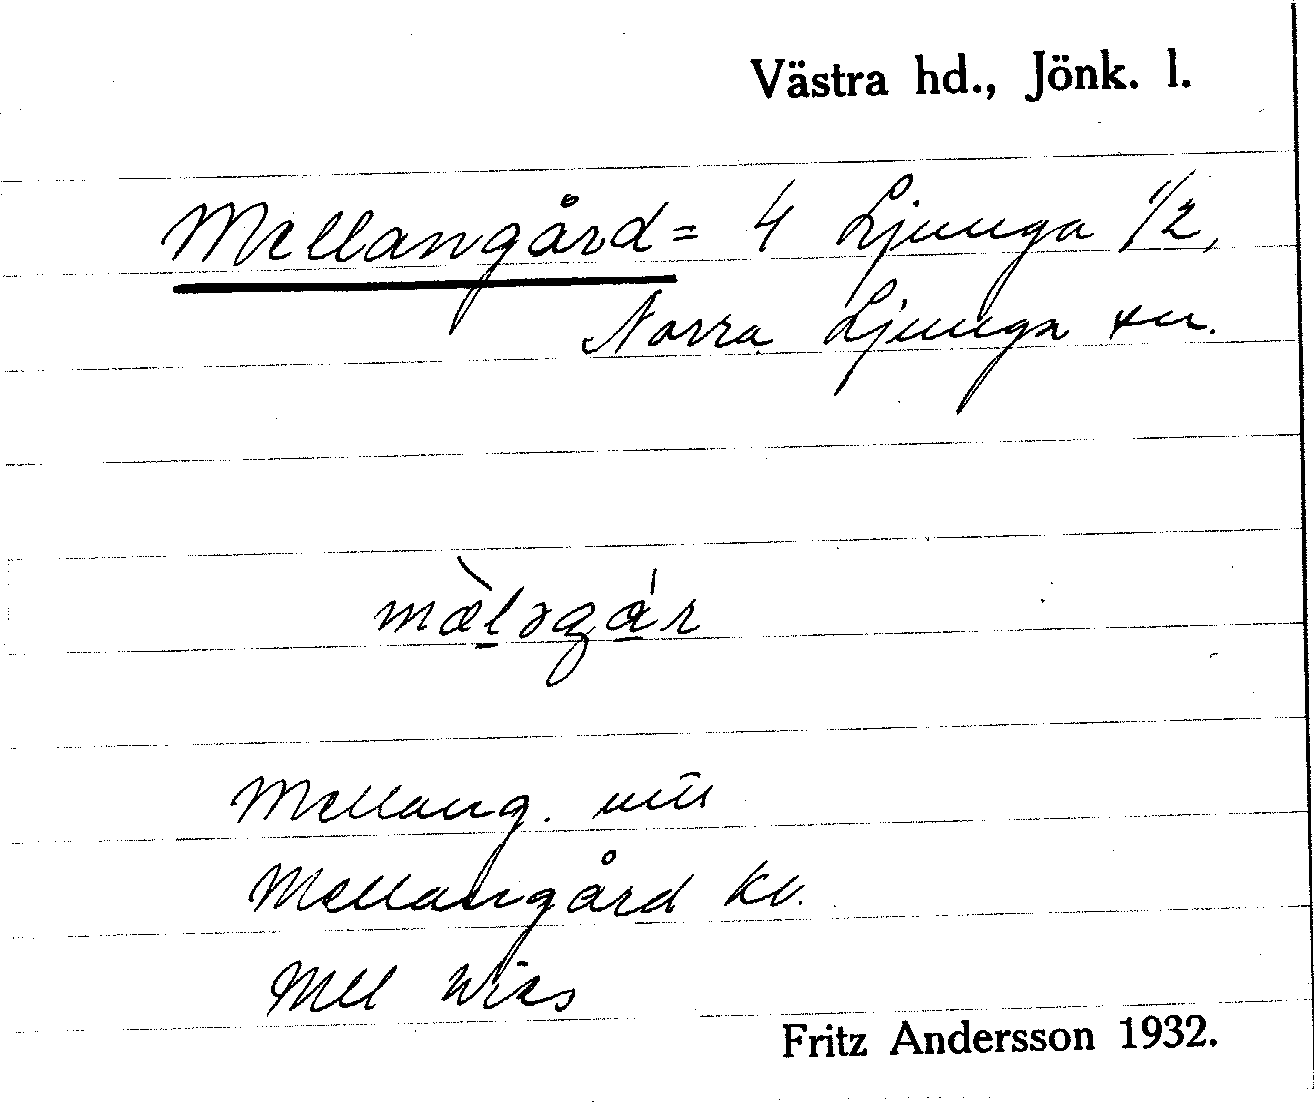 Västra hd., Jönk. l.
Mellangård = 4 Ljunga 1/2,
Norra Ljunga sn.
mæ̀ləgár
Mellang.
Mellangård kb.
Mell Wies
Fritz Andersson 1932.